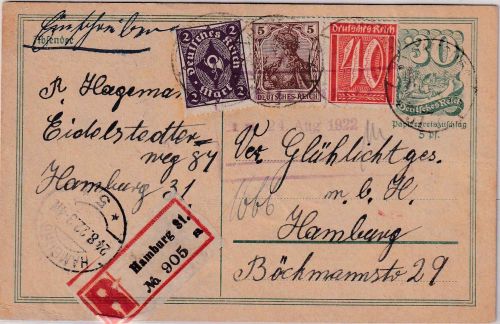 Einschreiben
Absender
2 2
Deutsches Reich
2 Mark 2
5 5
DEUTSCHES REICH
Deutsches Reich
40
30
Deutsches Reich
Papierpreiszuschlag
5 Pf.
R Hageman
Eidelstedter-
weg 87
Hamburg 31
24 Aug 1922
Ver Glühlichtges.
m. b. H.
Hamburg
Böckmannstr 29
HAMBURG
24.8.22
* 5
Hamburg 31.
№ 905 a